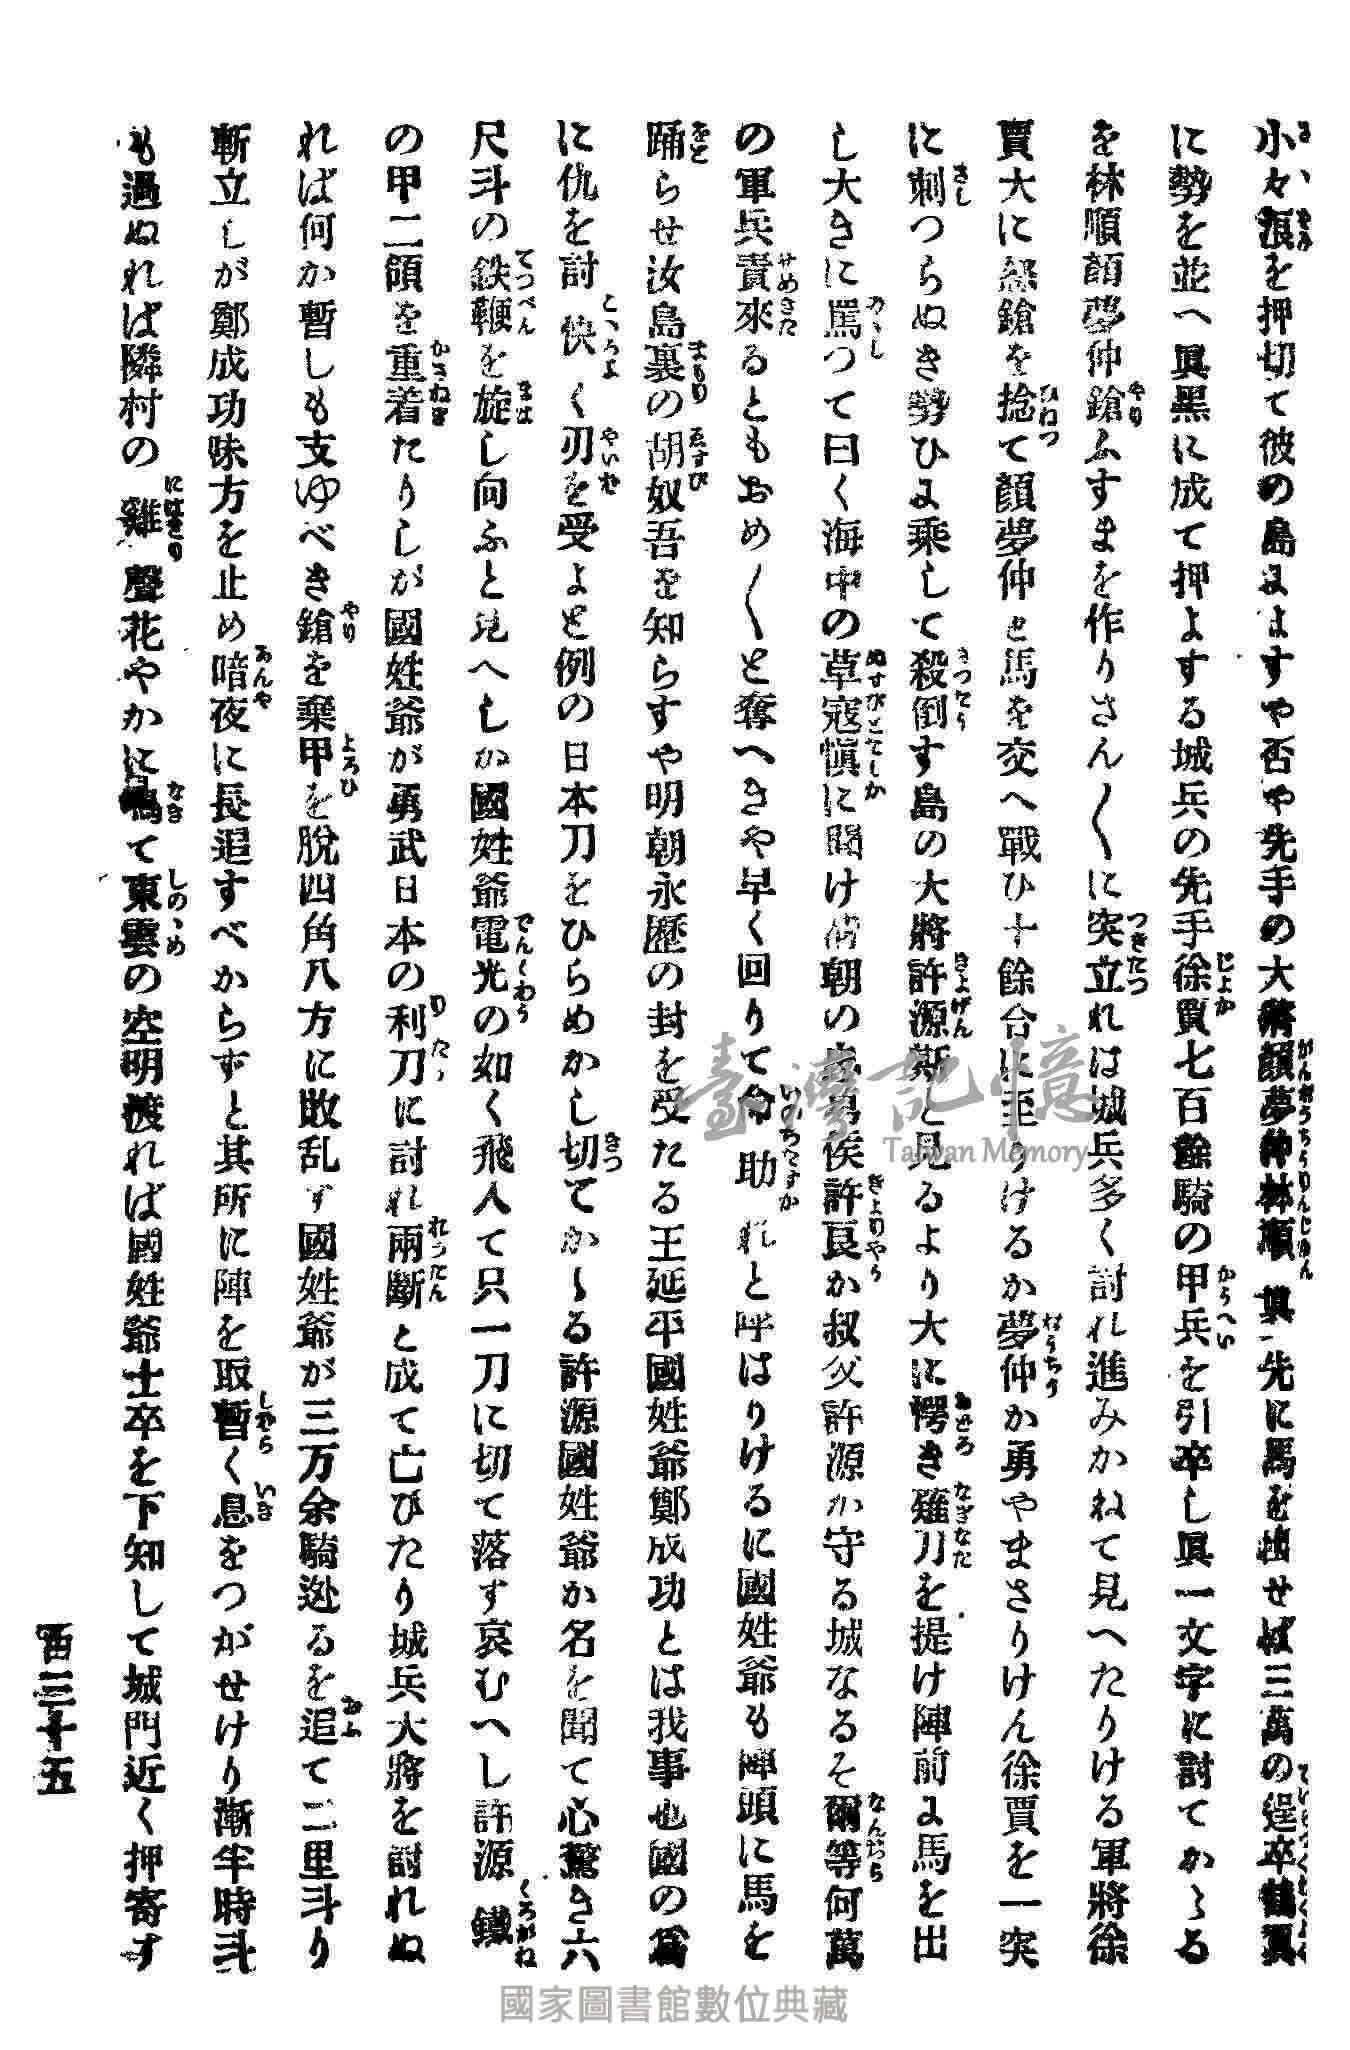 小々浪を押切て彼の島にはすや否や先手の大將顔夢仲林順眞先に馬を出せば三萬の逞卒鶴翼
に勢を並へ眞黒に成て押よする城兵の先手徐賈七百餘騎の甲兵を引卒し眞一文字に討てかゝる
を林順顔夢仲鎗ふすまを作りさん〱に突立れは城兵多く討れ進みかねて見へたりける軍將徐
賈大に怒鎗を捻て顔夢仲と馬を交へ戰ひ十餘合に至りけるか夢仲か勇やまさりけん徐賈を一突
に刺つらぬき勢ひに乘して殺倒す島の大將許源斯と見るより大に愕き薙刀を提け陣前に馬を出
し大きに罵つて曰く海中の草寇愼に聞け清朝の侯許良か叔父許源か守る城なるそ爾等何萬
の軍兵責來るともおめ〱と奪へきや早く回りて命助れと呼はりけるに國姓爺も陣頭に馬を
踊らせ汝島裏の胡奴吾を知らすや明朝永歴の封を受たる王延平國姓爺鄭成功とは我事也國の爲
に仇を討快く刃を受よと例の日本刀をひらめかし切てかゝる許源國姓爺か名を聞て心驚き六
尺斗の鉄鞭を旋し向ふと見へしか國姓爺電光の如く飛入て只一刀に切て落す哀むへし許源鐵
の甲二領を重着たりしが國姓爺が勇武日本の利刀に討れ兩斷と成て亡びたり城兵大將を討れぬ
れば何か暫しも支ゆべき鎗を棄甲を脱四角八方に敗乱す國姓爺が三万余騎迯るを追て二里斗り
斬立しが鄭成功味方を止め暗夜に長追すべからずと其所に陣を取暫く息をつがせけり漸半時斗
も過ぬれば隣村の雞聲花やかに鳴て東雲の空明渡れば國姓爺士卒を下知して城門近く押寄す
百三十五
臺灣記憶
Taiwan Memory
國家圖書館數位典藏